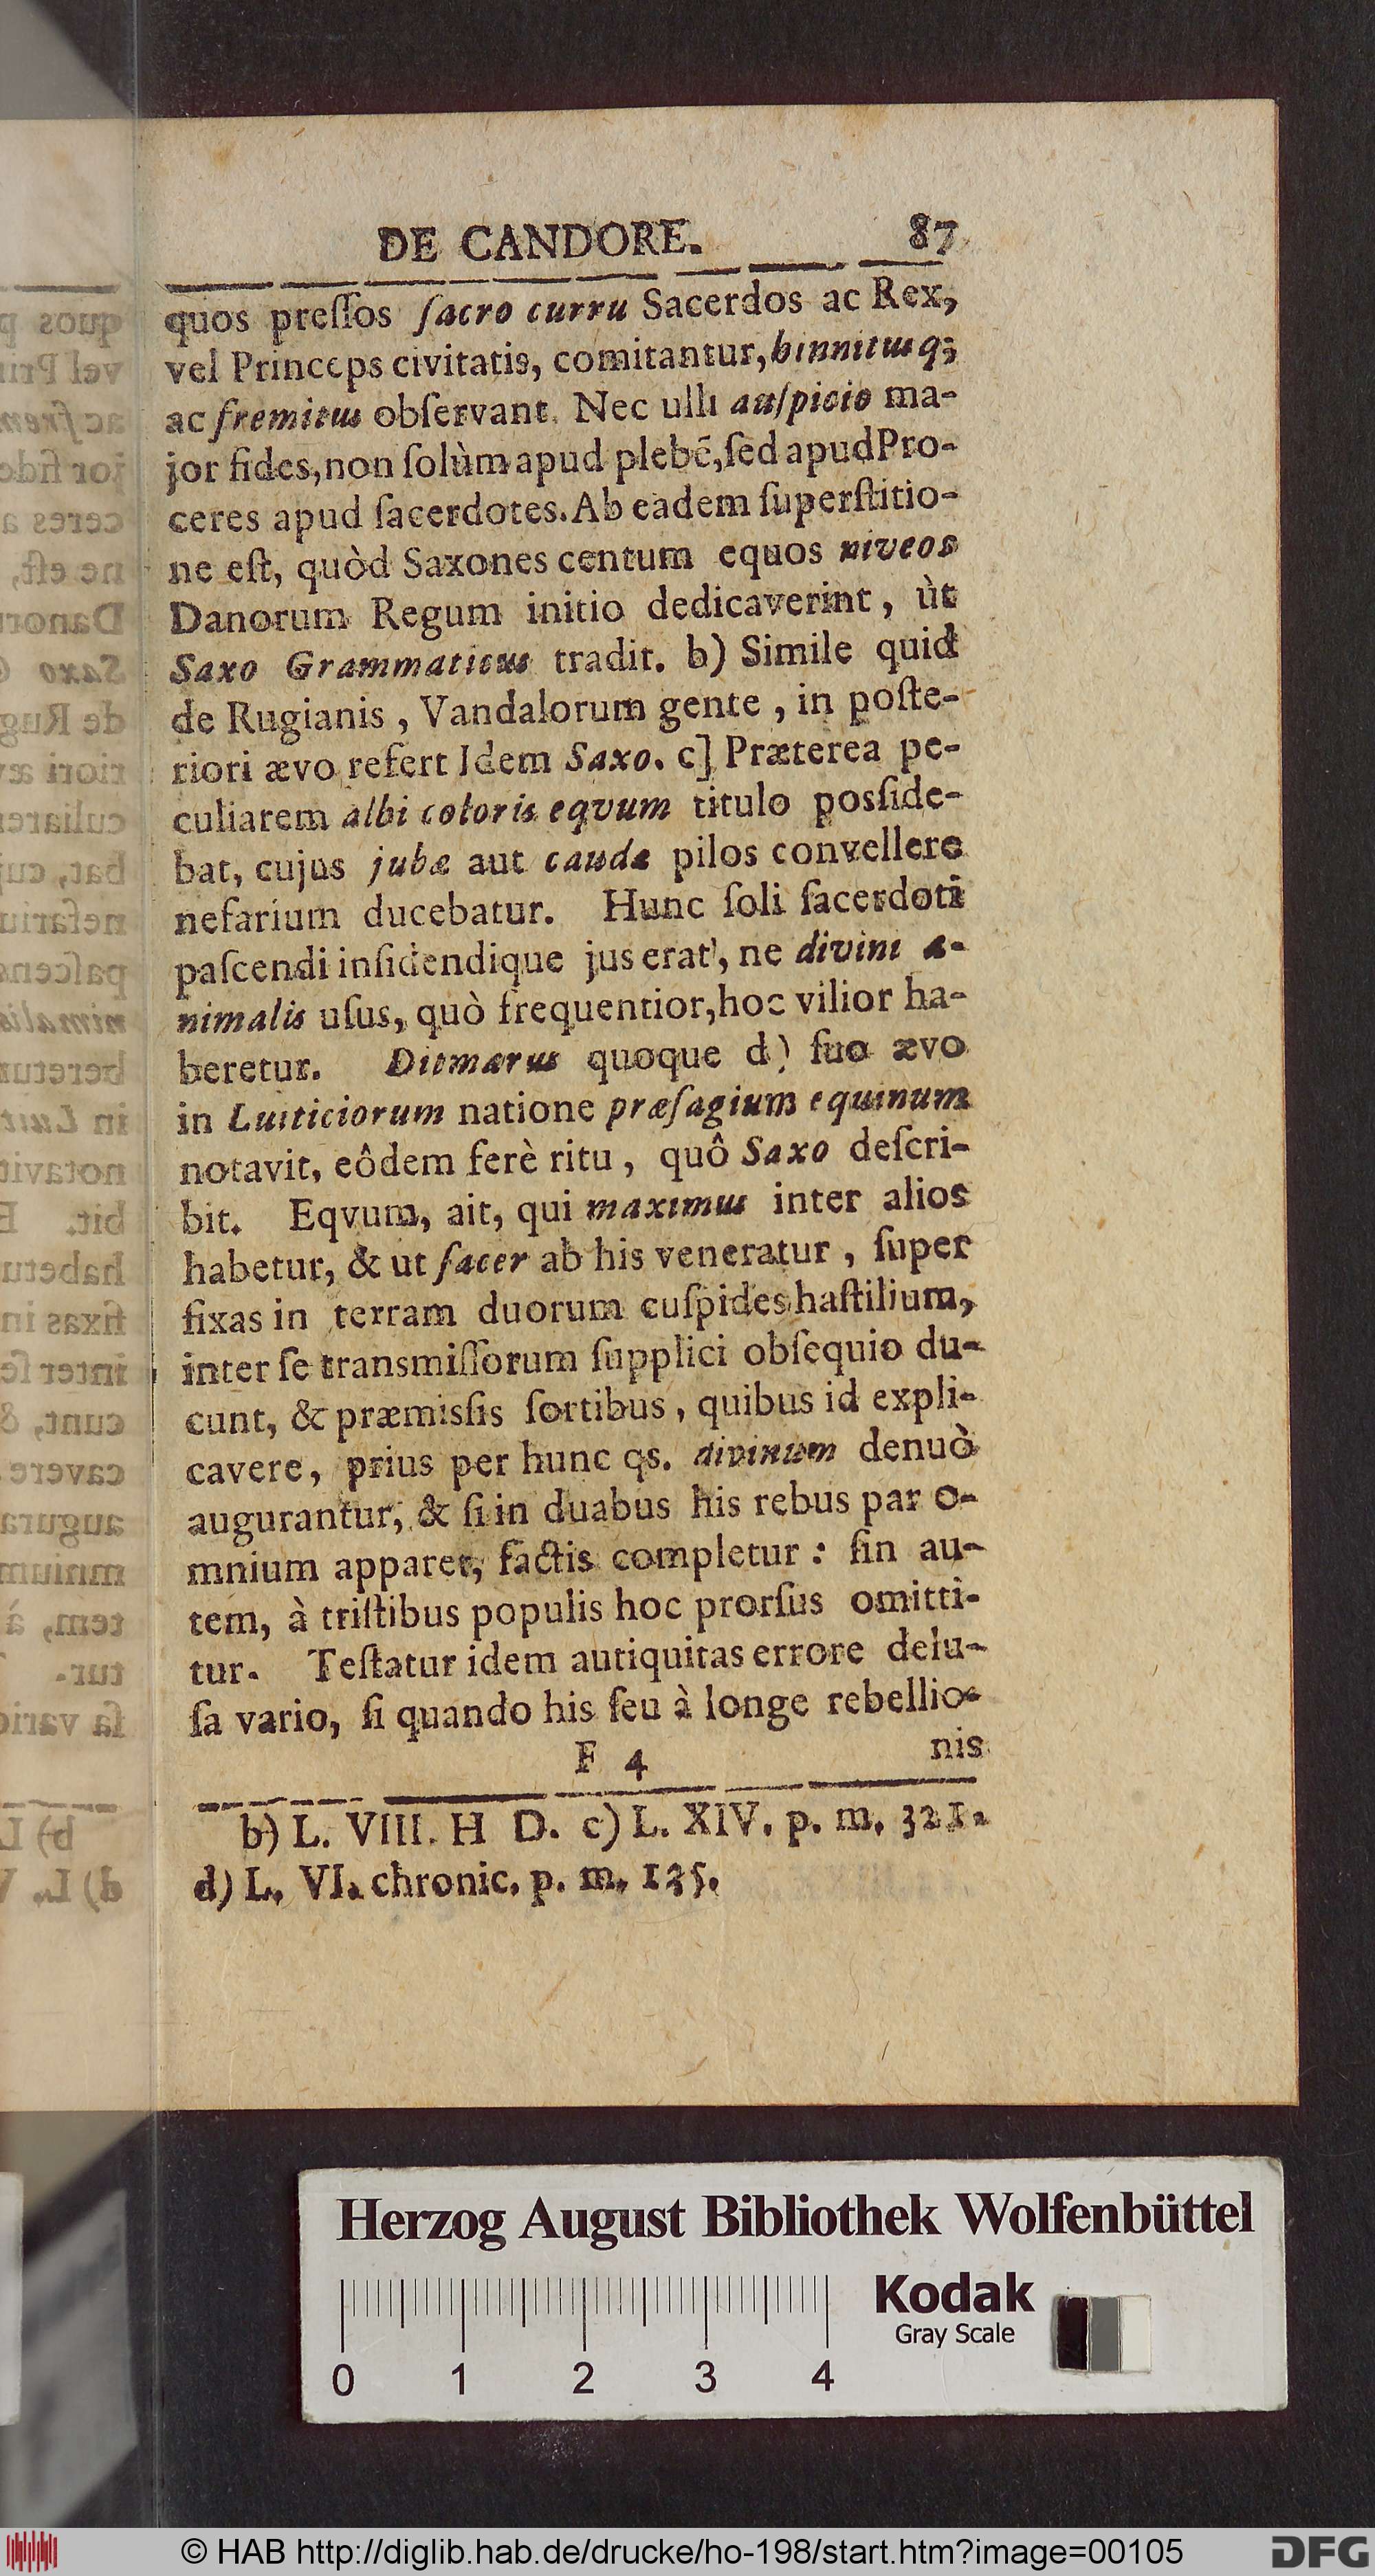 DE CANDORE. 87
quos preſſos ſacro curru Sacerdos ac Rex,
vel Princeps civitatis, comitantur, hinnitusq;
ac fremitus obſervant. Nec ulli auſpicio ma-
jor fides, non ſolùm apud plebẽ, ſed apud Pro-
ceres apud ſacerdotes. Ab eadem ſuperſtitio-
ne eſt, quòd Saxones centum equos niveos
Danorum Regum initio dedicaverint, ùt
Saxo Grammaticus tradit. b) Simile quid
de Rugianis, Vandalorum gente, in poſte-
riori ævo refert Idem Saxo. c] Præterea pe-
culiarem albi coloris eqvum titulo posſide-
bat, cujus jubæ aut caudæ pilos convellere
nefarium ducebatur. Hunc ſoli ſacerdoti
paſcendi inſidendique jus erat', ne divini a-
nimalis uſus, quò frequentior, hoc vilior ha-
beretur. Ditmarus quoque d) ſuo ævo
in Luiticiorum natione præſagium equinum
notavit, eôdem ferè ritu, quô Saxo deſcri-
bit. Eqvum, ait, qui maximus inter alios
habetur, & ut ſacer ab his veneratur, ſuper
fixas in terram duorum cuſpides haſtilium,
inter ſe transmiſſorum ſupplici obſequio du-
cunt, & præmisſis ſortibus, quibus id expli-
cavere, prius per hunc qs. divinum denuò
augurantur, & ſi in duabus his rebus par o-
mnium apparet, factis completur: ſin au-
tem, à triſtibus populis hoc prorſus omitti-
tur. Teſtatur idem autiquitas errore delu-
ſa vario, ſi quando his ſeu à longe rebellio-
F 4 nis
b) L. VIII. H D. c) L. XIV. p. m. 321.
d) L. VI. chronic. p. m. 135.
Herzog August Bibliothek Wolfenbüttel
Kodak
Gray Scale
0 1 2 3 4
© HAB http://diglib.hab.de/drucke/ho-198/start.htm?image=00105
DFG